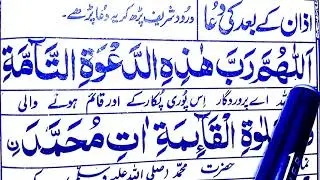 اذان کے بعد کی دُعا
درود شریف پڑھ کر یہ دعا پڑھے۔
اَللّٰهُمَّ رَبَّ هٰذِهِ الدَّعْوَةِ التَّآمَّةِ
اے پروردگار اس پوری پکار کے اور قائم ہونے والی
الْقَآئِمَةِ اٰتِ مُحَمَّدَنِ
حضرت محمد (صلی اللہ علیہ وسلم